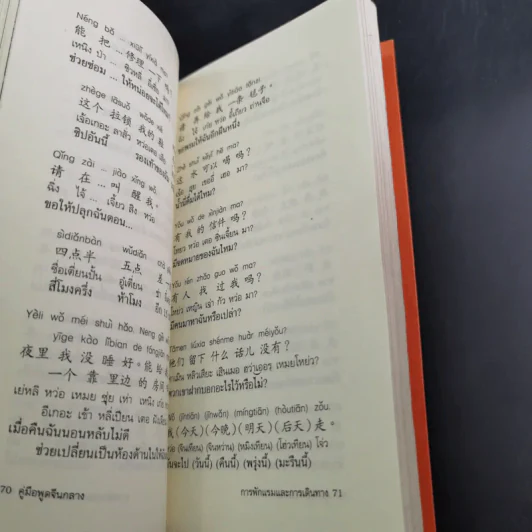 Néng bǎ
能 把 ... 修理一下
เหนิง ป่า ... ซิวหลี่
ช่วยซ่อม ... ให้หน่อยจะได้ไหม
zhège lāsuǒ
这 个 拉 锁 我 的
เจ้อเกอะ ลาสั่ว หว่อเตอ
ซิปอันนี้ รองเท้าของฉัน
Qǐng zài ... jiào xǐng wǒ
请 在 ... 叫 醒 我。
ฉิ่ง ไจ้ ... เจี้ยว สิ่ง หว่อ
ขอให้ปลุกฉันตอน...
sìdiǎnbàn wǔdiǎn
四点半 五点 差
ซื่อเตี่ยนปั้น อู๋เตี่ยน
สี่โมงครึ่ง ห้าโมง อีก
Yèli wǒ méi shuì hǎo. Néng gěi
yīge kào lǐbian de fángjiān
夜里 我 没 睡 好。能 给
一个 靠 里边 的 房间
เย่หลี หว่อ เหมย ซุ่ย เห่า เหนิง
อีเกอะ เข้า หลี่เปียน เตอ
เมื่อคืนฉันนอนหลับไม่ดี
ช่วยเปลี่ยนเป็นห้องด้านในให้
70 คู่มือพูดจีนกลาง
请 再 给 我 一 条 毯子。
ขอพรมให้ฉันอีกผืนหนึ่ง
这 水 可以 喝 吗?
น้ำนี่ดื่มได้ไหม?
Yǒu wǒ de xìnjiàn ma?
有 我 的 信件 吗?
โหย่ว หว่อ เตอ ซิ่นเจี้ยน มา?
มีจดหมายของฉันไหม?
Yǒu rén zhǎo guo wǒ ma?
有 人 找 过 我 吗?
โหย่ว เหญิน เจ่า กัว หว่อ มา?
มีคนมาหาฉันหรือเปล่า?
Tāmen liúxia shénme huàr méiyǒu?
他们 留下 什么 话儿 没有?
ทาเมิน หลิวเสียะ เสินเมอ ฮว่าเออร เหมยโหย่ว?
พวกเขาฝากบอกอะไรไว้หรือไม่?
Wǒ (jīntiān) (jīnwǎn) (míngtiān) (hòutiān) zǒu.
我 (今天) (今晚) (明天) (后天) 走。
หว่อ (จินเทียน) (จินหว่าน) (หมิงเทียน) (โฮ่วเทียน) โจ่ว
ฉันจะไป (วันนี้) (คืนนี้) (พรุ่งนี้) (มะรืนนี้)
การพักแรมและการเดินทาง 71